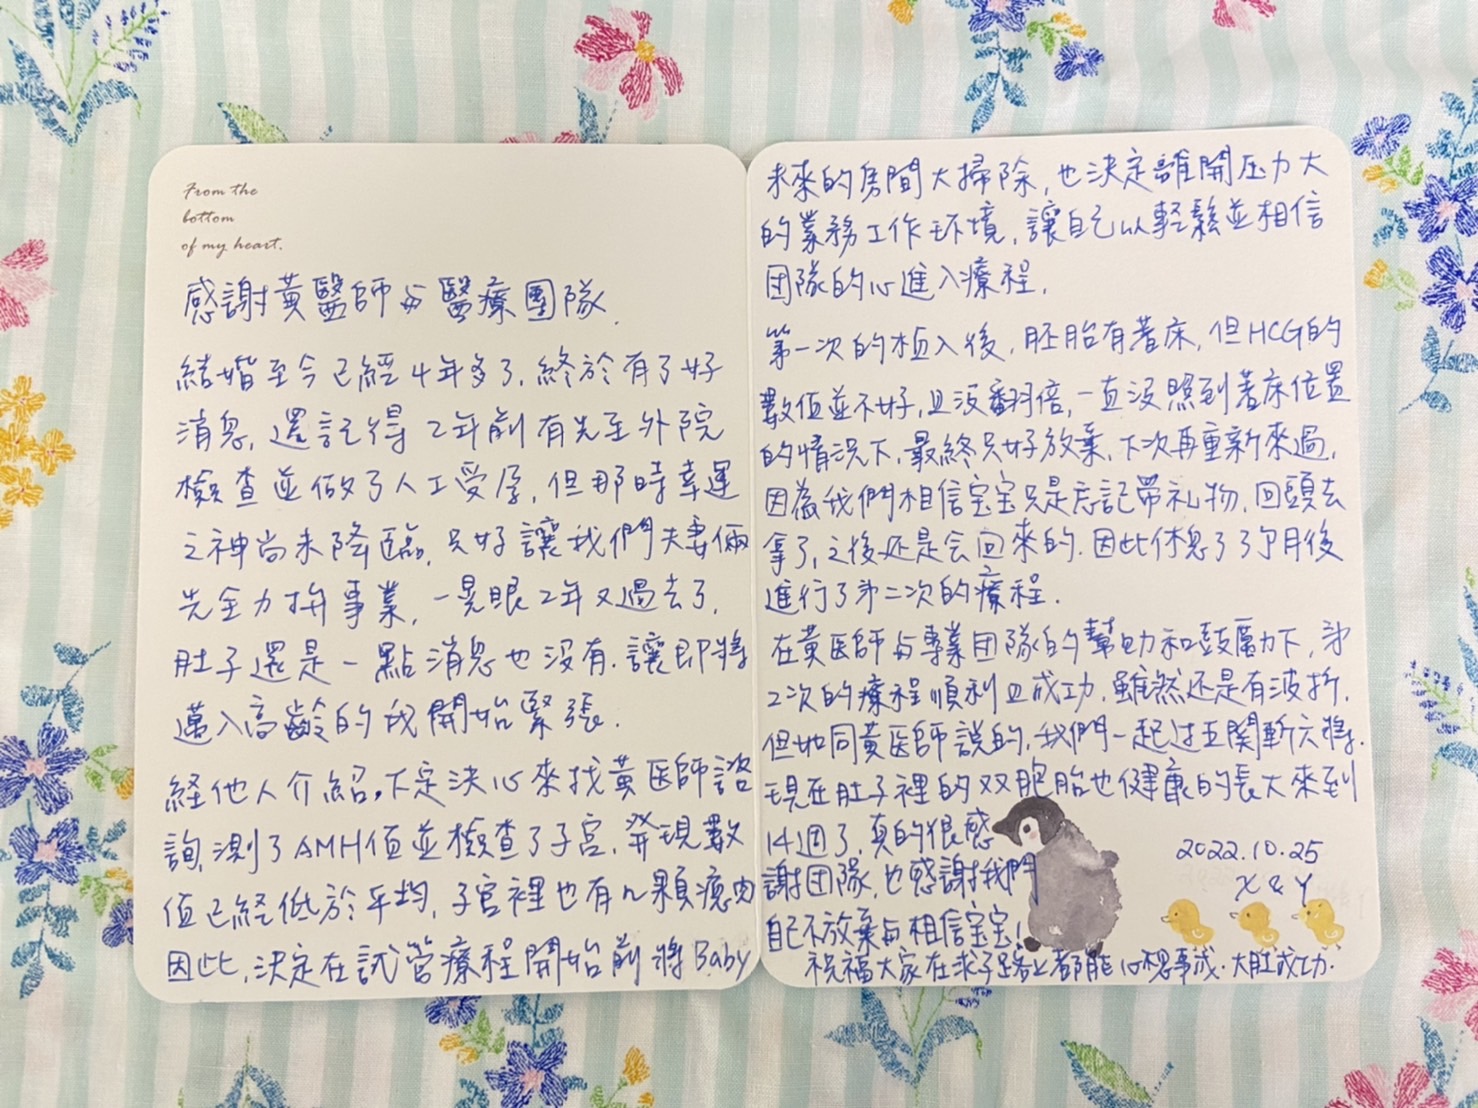 From the
bottom
of my heart.
感謝黃醫師与醫療團隊.
結婚至今已經4年多了,終於有了好
消息,還記得2年前有先至外院
檢查並做了人工受孕,但那時幸運
之神尚未降臨,只好讓我們夫妻倆
先全力拚事業,一晃眼2年又過去了,
肚子還是一點消息也沒有.讓即將
邁入高齡的我開始緊張.
経他人介紹,下定決心來找黃医師諮
詢,測了AMH值並檢查了子宮,発現數
值已経低於平均,子宮裡也有几顆瘜肉
因此,決定在試管療程開始前將Baby
未來的房間大掃除,也決定離開压力大
的業務工作环境,讓自己以輕鬆並相信
团隊的心進入療程.
第一次的植入後,胚胎有著床,但HCG的
數值並不好,且沒翻倍,一直沒照到著床位置
的情況下,最終只好放棄,下次再重新來過,
因為我們相信宝宝只是忘記帶礼物,回頭去
拿了,之後还是会回來的.因此休息了3个月後
進行了第二次的療程.
在黃医師与專業团隊的幫助和鼓厲力下,第
2次的療程順利且成功.雖然还是有波折,
但如同黃医師說的,我們一起过五関斬六將.
現在肚子裡的双胞胎也健康的長大來到
14週了,真的很感
謝団隊,也感謝我們
自己不放棄与相信宝宝!
2022.10.25
X & Y
祝福大家在求子路上都能心想事成.大肚成功.